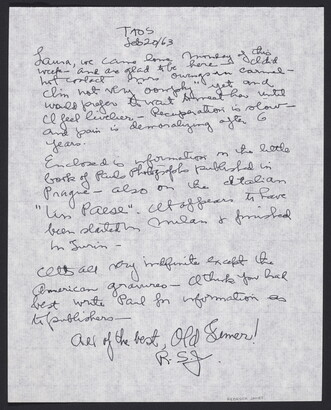 TAOS
Feb 20/63
Laura, we came home Monday of this
week - and are glad to be here - I did
not contact Mrs Owings in Carmel -
Am not very oomphy yet and
would prefer to wait almost has until
I feel livelier - Recuperation is slow -
and pain is demoralizing after 6
years.
Enclosed is information on the little
book of Paul's Photographs published in
Prague - also on the Italian
"Un Paese". It appears to have
been started in Milan & finished
in Turin -
It's all very indefinite except the
American gravures - I think you had
best write Paul for information as
to publishers -
All of the best, Old Timer!
R.S.J.